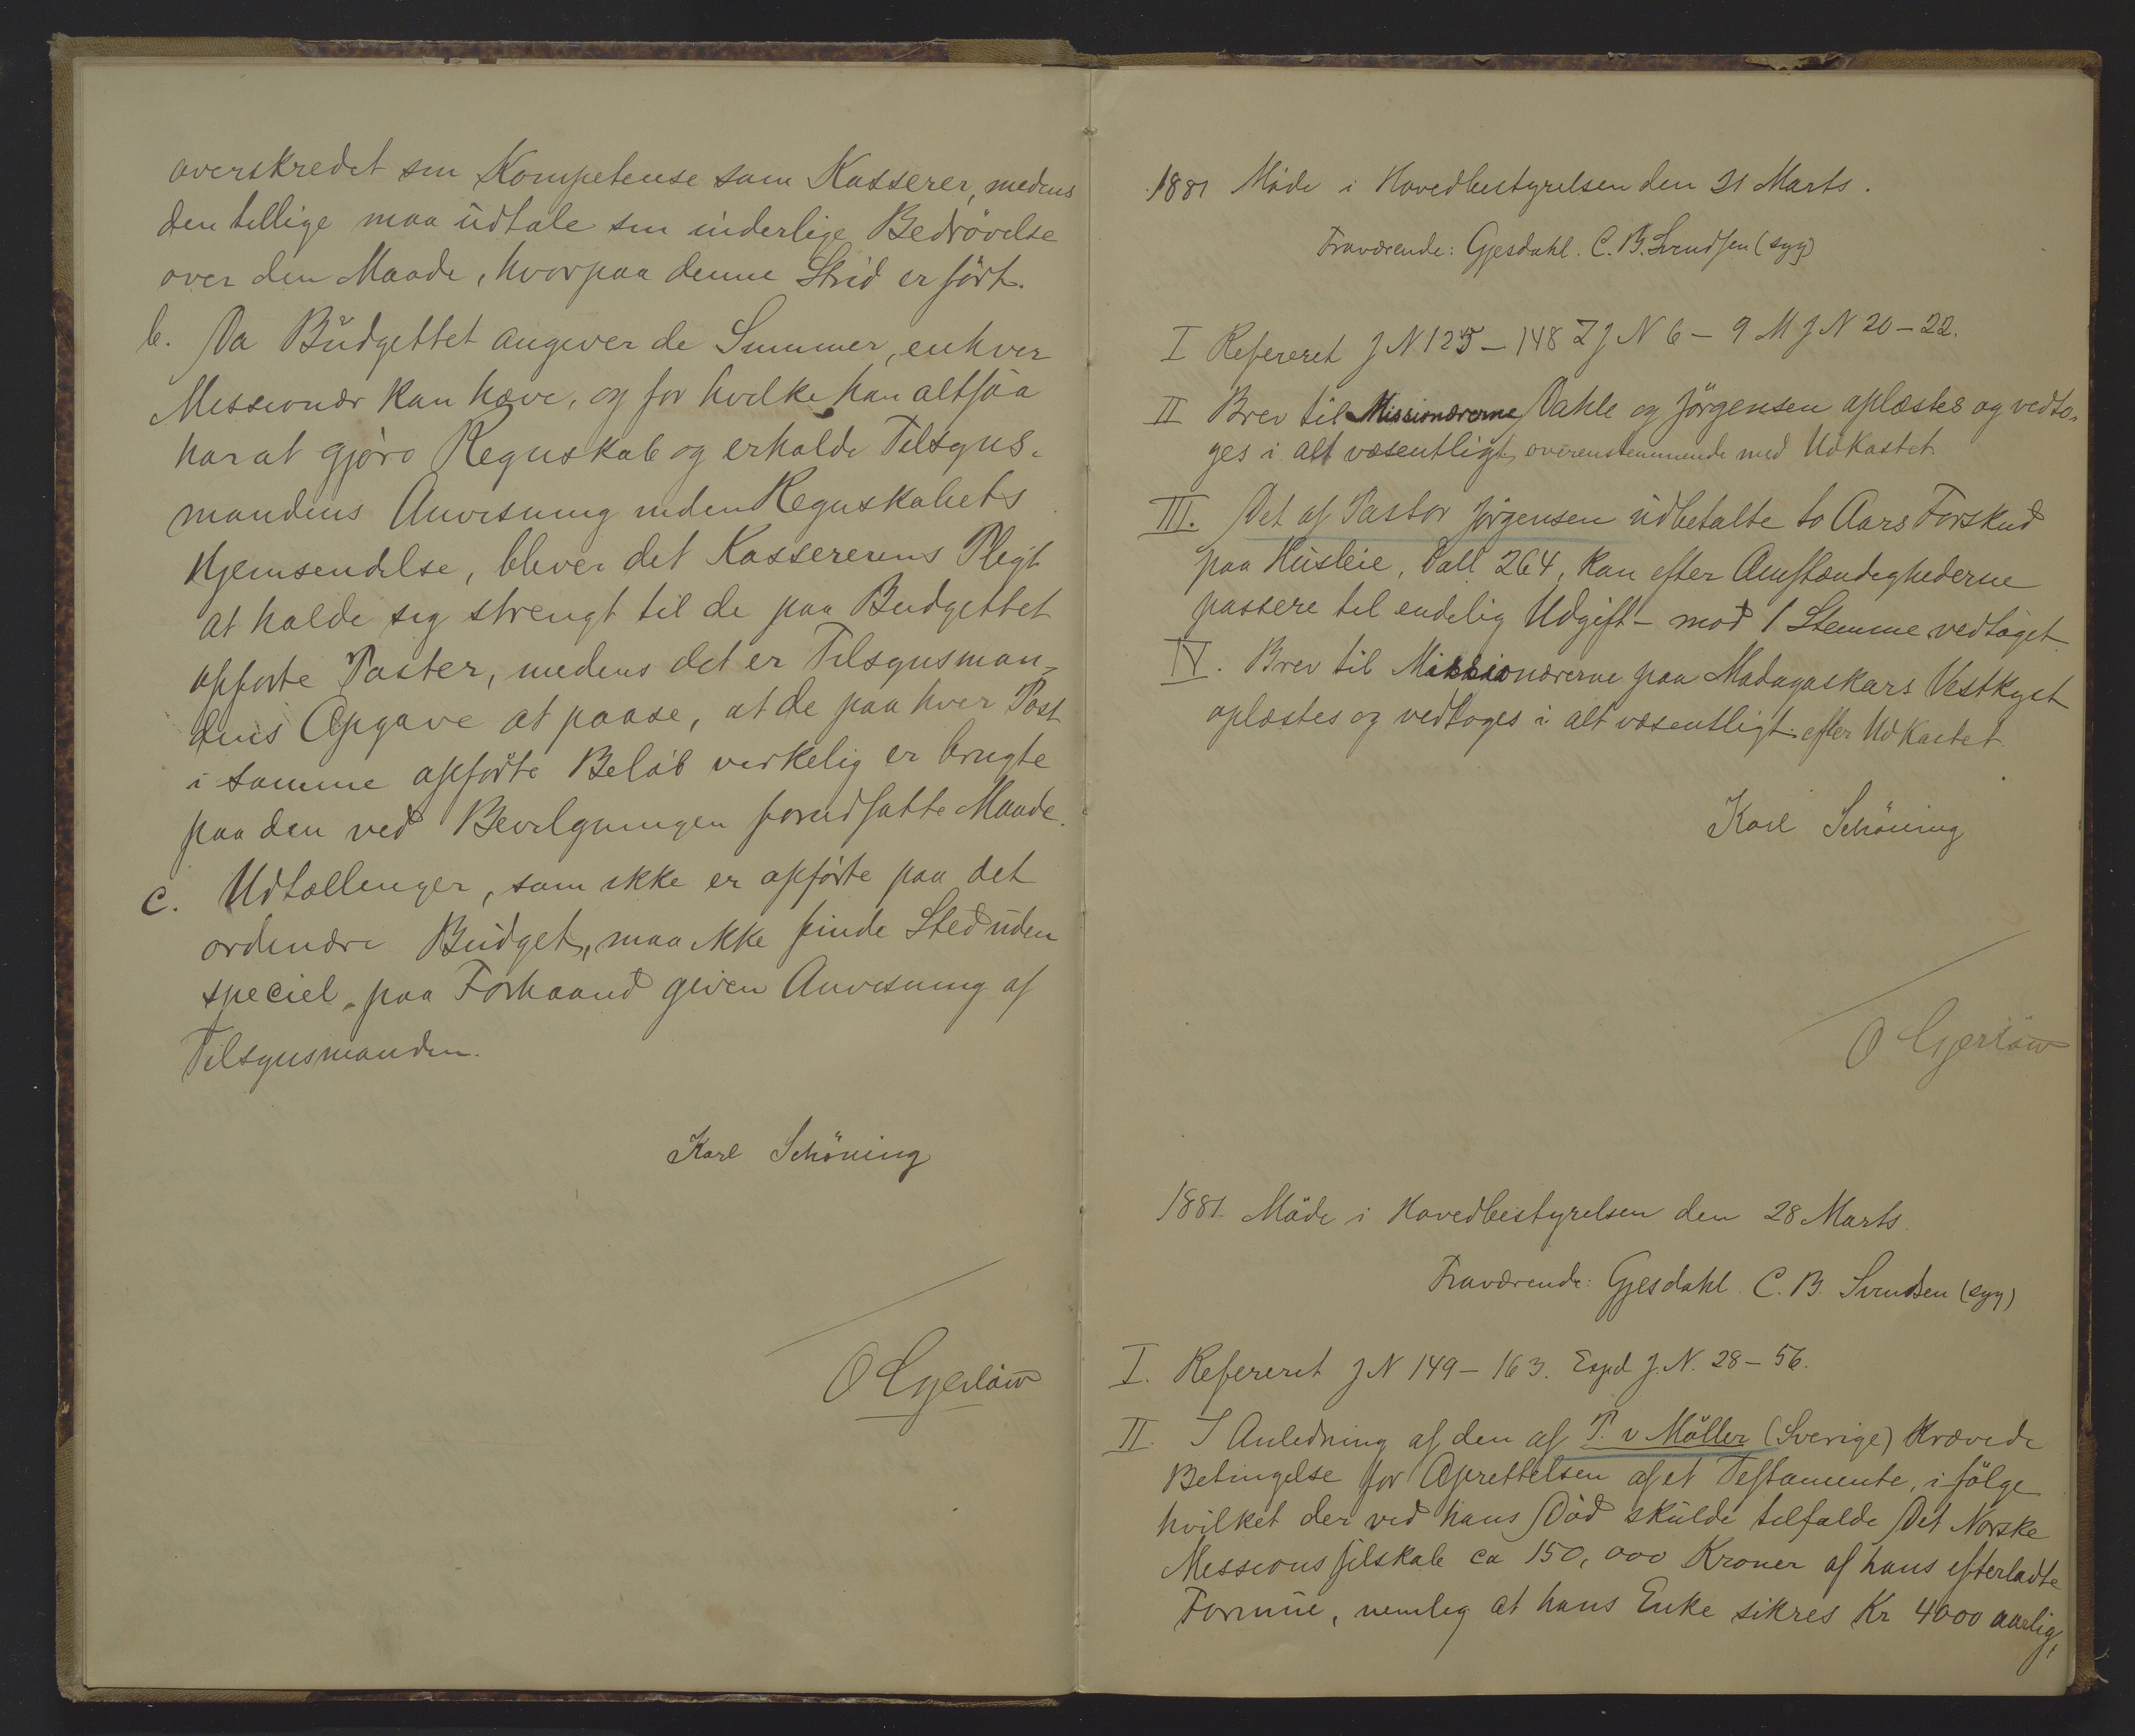 overskredet sin Kompetense som Kasserer, medens
den tillige maa udtale sin inderlige Bedrövelse
over den Maade, hvorpaa denne Strid er fört.
b. Da Budgettet angiver de Summer, enhver
Missionær kan hæve, og for hvilke han altsaa
har at gjöre Regnskab og erholde Tilsyns-
mandens Anvisning inden Regnskabets
Hjemsendelse, bliver det Kassererens Pligt
at holde sig strengt til de paa Budgettet
opförte Poster, medens det er Tilsynsman-
dens Opgave at paase, at de paa hver Post
i samme opförte Belöb virkelig er brugte
paa den ved Bevilgningen forudsatte Maade.
c. Udtællinger, som ikke er opförte paa det
ordinære Budget, maa ikke finde Sted uden
speciel paa Forhaand given Anvisning af
Tilsynsmanden.
Karl Schöning
O Gjerlöw
1881 Möde i Hovedbestyrelsen den 21 Marts.
Fraværende: Gjesdahl. C. B. Svendsen (syg)
I Refereret J N 125 – 148 Z J N 6 – 9 M J N 20 – 22.
II Brev til Missionærerne Dahle og Jörgensen oplæstes og vedto-
ges i alt væsentligt overensstemmende med Udkastet
III. Det af Pastor Jörgensen udbetalte to Aars Forskud
paa Husleie, Doll 264, kan efter Omstændighederne
passere til endelig Udgift – mod 1 Stemme vedtaget
IV. Brev til Missionærerne paa Madagaskars Vestkyst
oplæstes og vedtoges i alt væsentligt efter Udkastet.
Karl Schöning
O Gjerlöw
1881. Möde i Hovedbestyrelsen den 28 Marts.
Fraværende: Gjesdahl. C. B. Svendsen (syg)
I. Refereret J N 149 – 163. Exped J. N. 28 – 56.
II. I Anledning af den af P. v Möller (Sverige) krævede
Betingelse for Oprettelsen af et Testamente, i fölge
hvilket der ved hans Död skulde tilfalde Det Norske
Missionsselskab ca 150,000 Kroner af hans efterladte
Formue, nemlig at hans Enke sikres Kr 4000 aarlig,